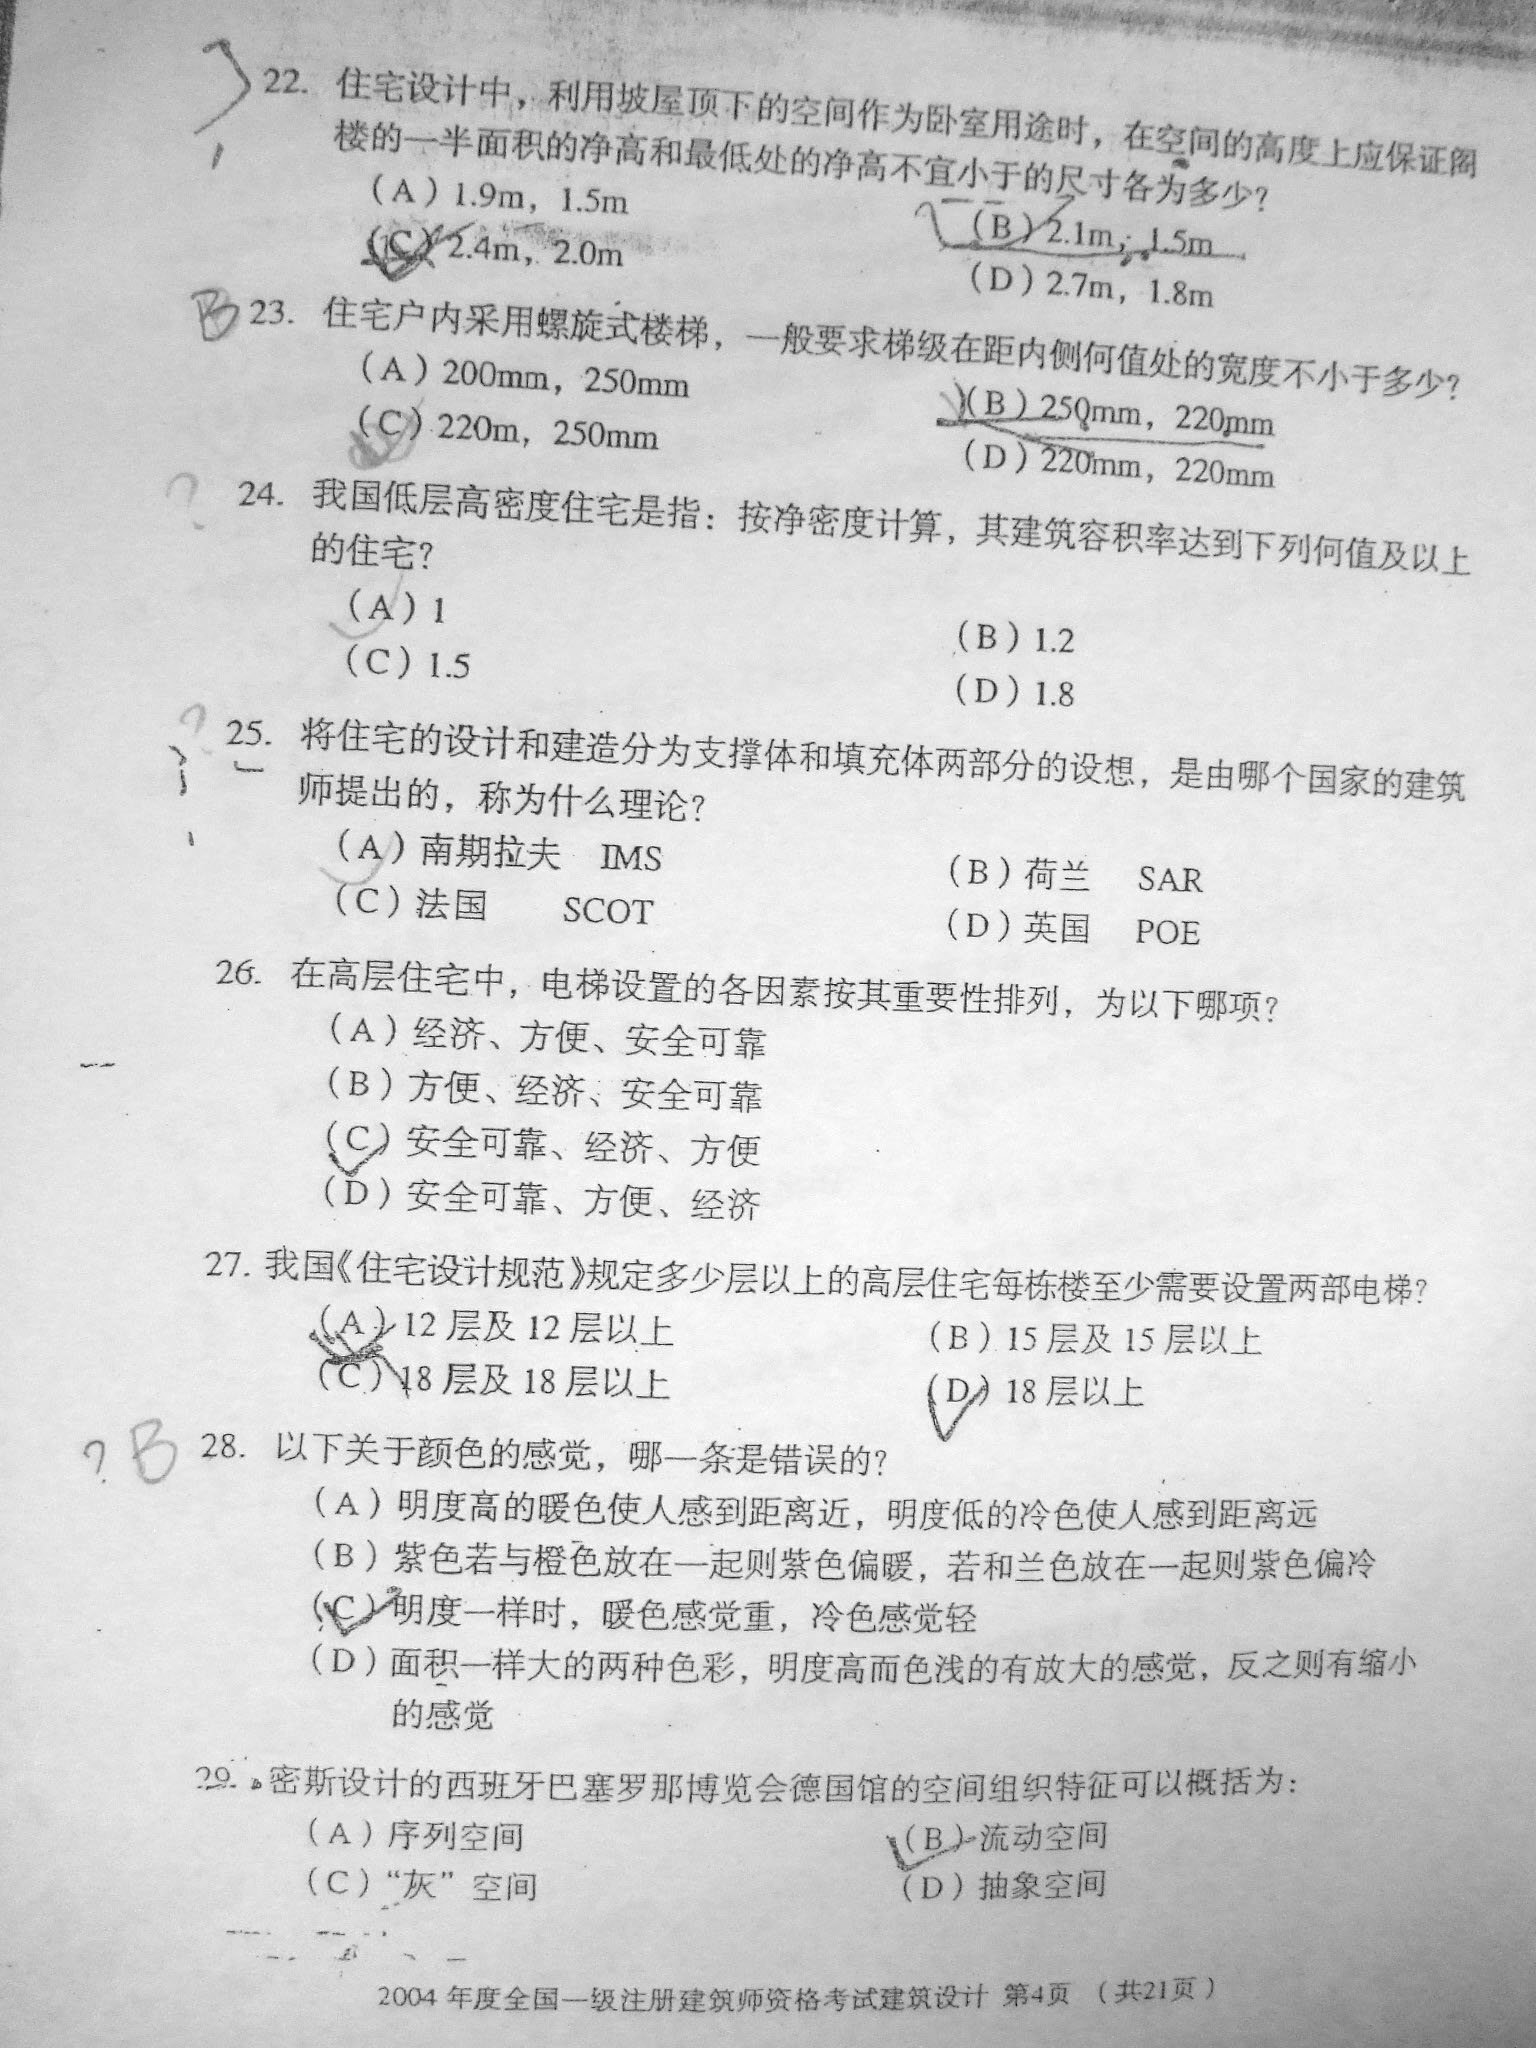 22. 住宅设计中，利用坡屋顶下的空间作为卧室用途时，在空间的高度上应保证阁
楼的一半面积的净高和最低处的净高不宜小于的尺寸各为多少？
（A）1.9m，1.5m
（B）2.1m，1.5m
（C）2.4m，2.0m
（D）2.7m，1.8m
B 23. 住宅户内采用螺旋式楼梯，一般要求梯级在距内侧何值处的宽度不小于多少？
（A）200mm，250mm
（B）250mm，220mm
（C）220m，250mm
（D）220mm，220mm
? 24. 我国低层高密度住宅是指：按净密度计算，其建筑容积率达到下列何值及以上
的住宅？
（A）1
（B）1.2
（C）1.5
（D）1.8
? 25. 将住宅的设计和建造分为支撑体和填充体两部分的设想，是由哪个国家的建筑
师提出的，称为什么理论？
（A）南期拉夫 IMS
（B）荷兰 SAR
（C）法国 SCOT
（D）英国 POE
26. 在高层住宅中，电梯设置的各因素按其重要性排列，为以下哪项？
（A）经济、方便、安全可靠
（B）方便、经济、安全可靠
（C）安全可靠、经济、方便
（D）安全可靠、方便、经济
27. 我国《住宅设计规范》规定多少层以上的高层住宅每栋楼至少需要设置两部电梯？
（A）12 层及 12 层以上
（B）15 层及 15 层以上
（C）18 层及 18 层以上
（D）18 层以上
? B 28. 以下关于颜色的感觉，哪一条是错误的？
（A）明度高的暖色使人感到距离近，明度低的冷色使人感到距离远
（B）紫色若与橙色放在一起则紫色偏暖，若和兰色放在一起则紫色偏冷
（C）明度一样时，暖色感觉重，冷色感觉轻
（D）面积一样大的两种色彩，明度高而色浅的有放大的感觉，反之则有缩小
的感觉
29. 密斯设计的西班牙巴塞罗那博览会德国馆的空间组织特征可以概括为：
（A）序列空间
（B）流动空间
（C）“灰”空间
（D）抽象空间
2004 年度全国一级注册建筑师资格考试建筑设计 第4页 （共21页）